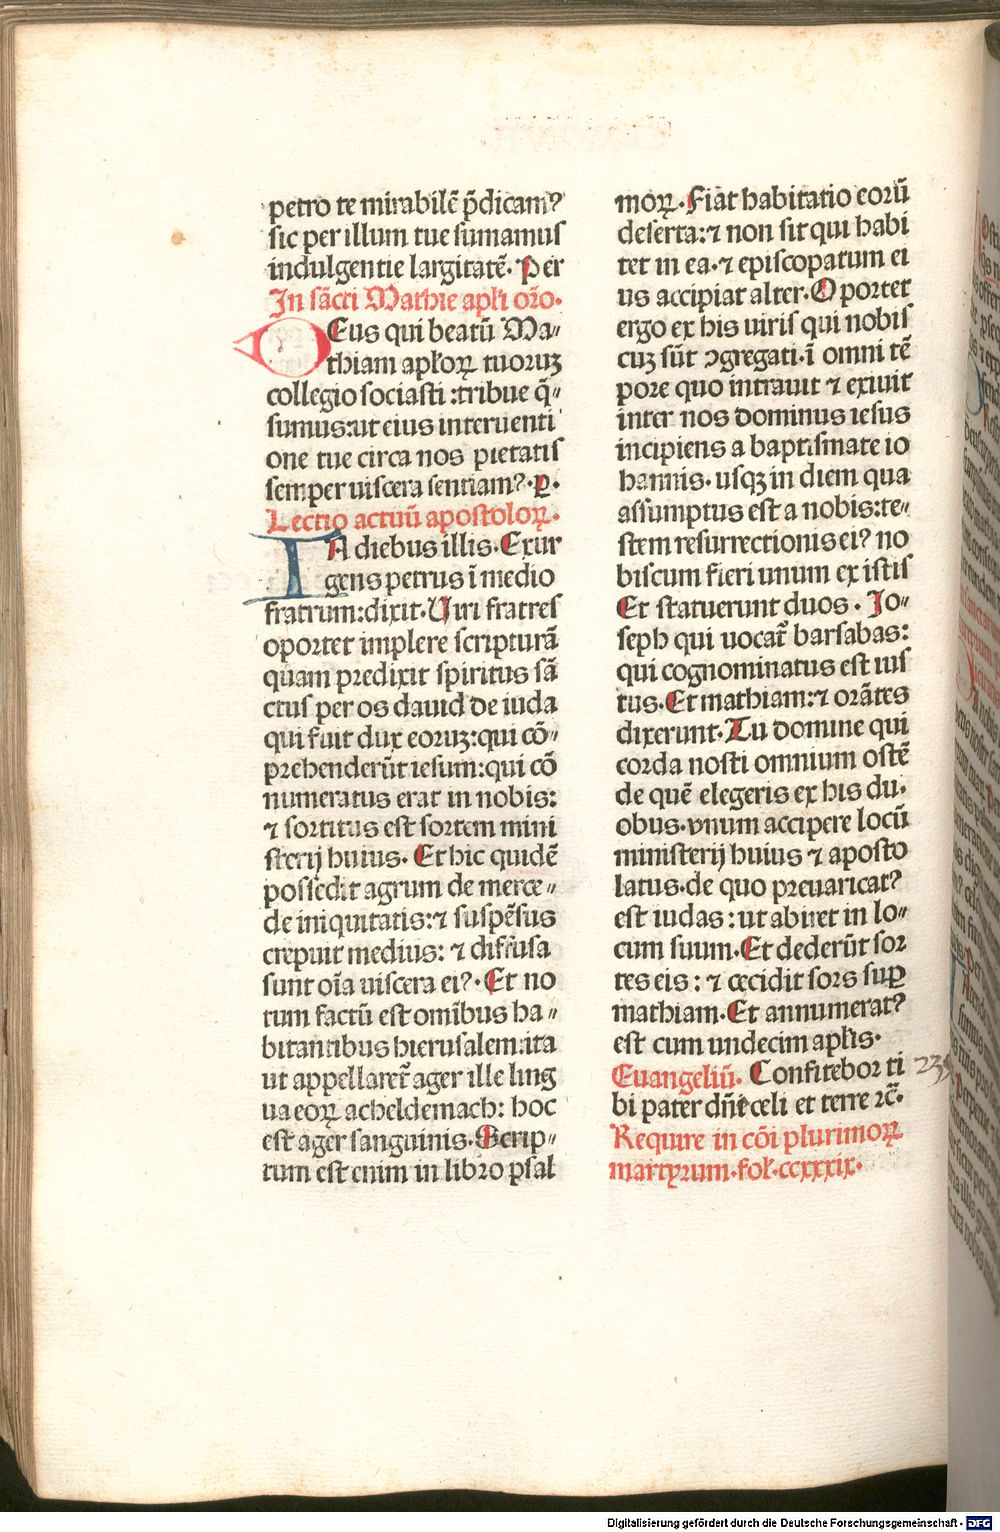 petro te mirabilē p̄dicamꝰ
sic per illum tue sumamus
indulgentie largitatē. Per
In sācti Mathie apłi oīo.
DEus qui beatū Ma⸗
thiam apłoꝝ tuoruꝫ
collegio sociasti :tribue q̄⸗
sumus:ut eius interuenti
one tue circa nos pietatis
semper uiscera sentiamꝰ.ꝑ.
Lectio actuū apostoloꝝ.
IN diebus illis.Exur
gens petrus ī medio
fratrum:dixit.Uiri fratres
oportet implere scripturā
quam predixit spiritus sā
ctus per os dauid de iuda
qui fuit dux eoruꝫ:qui cō⸗
prehenderūt iesum:qui cō
numeratus erat in nobis:
⁊ sortitus est sortem mini
sterij huius. Et hic quidē
possedit agrum de merce⸗
de iniquitatis:⁊ suspēsus
crepuit medius: ⁊ diffusa
sunt oīa uiscera eiꝰ. Et no
tum factū est omībus ha⸗
bitantibus hierusalem:ita
ut appellaret᷑ ager ille ling
ua eoꝝ acheldemach: hoc
est ager sanguinis.Scrip⸗
tum est enim in libro psal
moꝝ.Fiat habitatio eorū
deserta:⁊ non sit qui habi
tet in ea.⁊ episcopatum ei
us accipiat alter.Oportet
ergo ex his uiris qui nobis
cuꝫ sūt ꝯgregati.ī omni tē
pore quo intrauit ⁊ exiuit
inter nos dominus iesus
incipiens a baptismate io
hannis. usqꝫ in diem qua
assumptus est a nobis:te⸗
stem resurrectionis eiꝰ no
biscum fieri unum ex istis
Et statuerunt duos. Jo⸗
seph qui uocat᷑ barsabas:
qui cognominatus est ius
tus.Et mathiam:⁊ orātes
dixerunt.Tu domine qui
corda nosti omnium ostē
de quē elegeris ex his du⸗
obus.vnum accipere locū
ministerij huius ⁊ aposto
latus.de quo preuaricatꝰ
est iudas:ut abiret in lo⸗
cum suum.Et dederūt sor
tes eis: ⁊ cecidit sors suꝑ
mathiam.Et annumeratꝰ
est cum undecim apłis.
Euangeliū. Confitebor ti
bi pater dn̄e celi et terre ⁊c̄.
Require in cōi plurimoꝝ
martyrum.fol.ccxxxix.
Digitalisierung gefördert durch die Deutsche Forschungsgemeinschaft - DFG